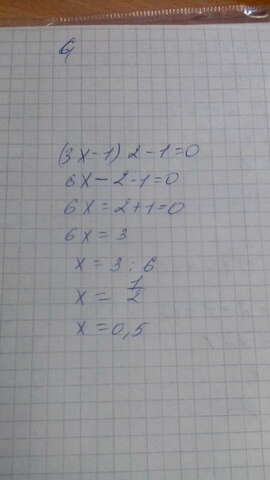 б
(3x-1)2-1=0
6x-2-1=0
6x=2+1=0
6x=3
x=3:6
x=1/2
x=0,5